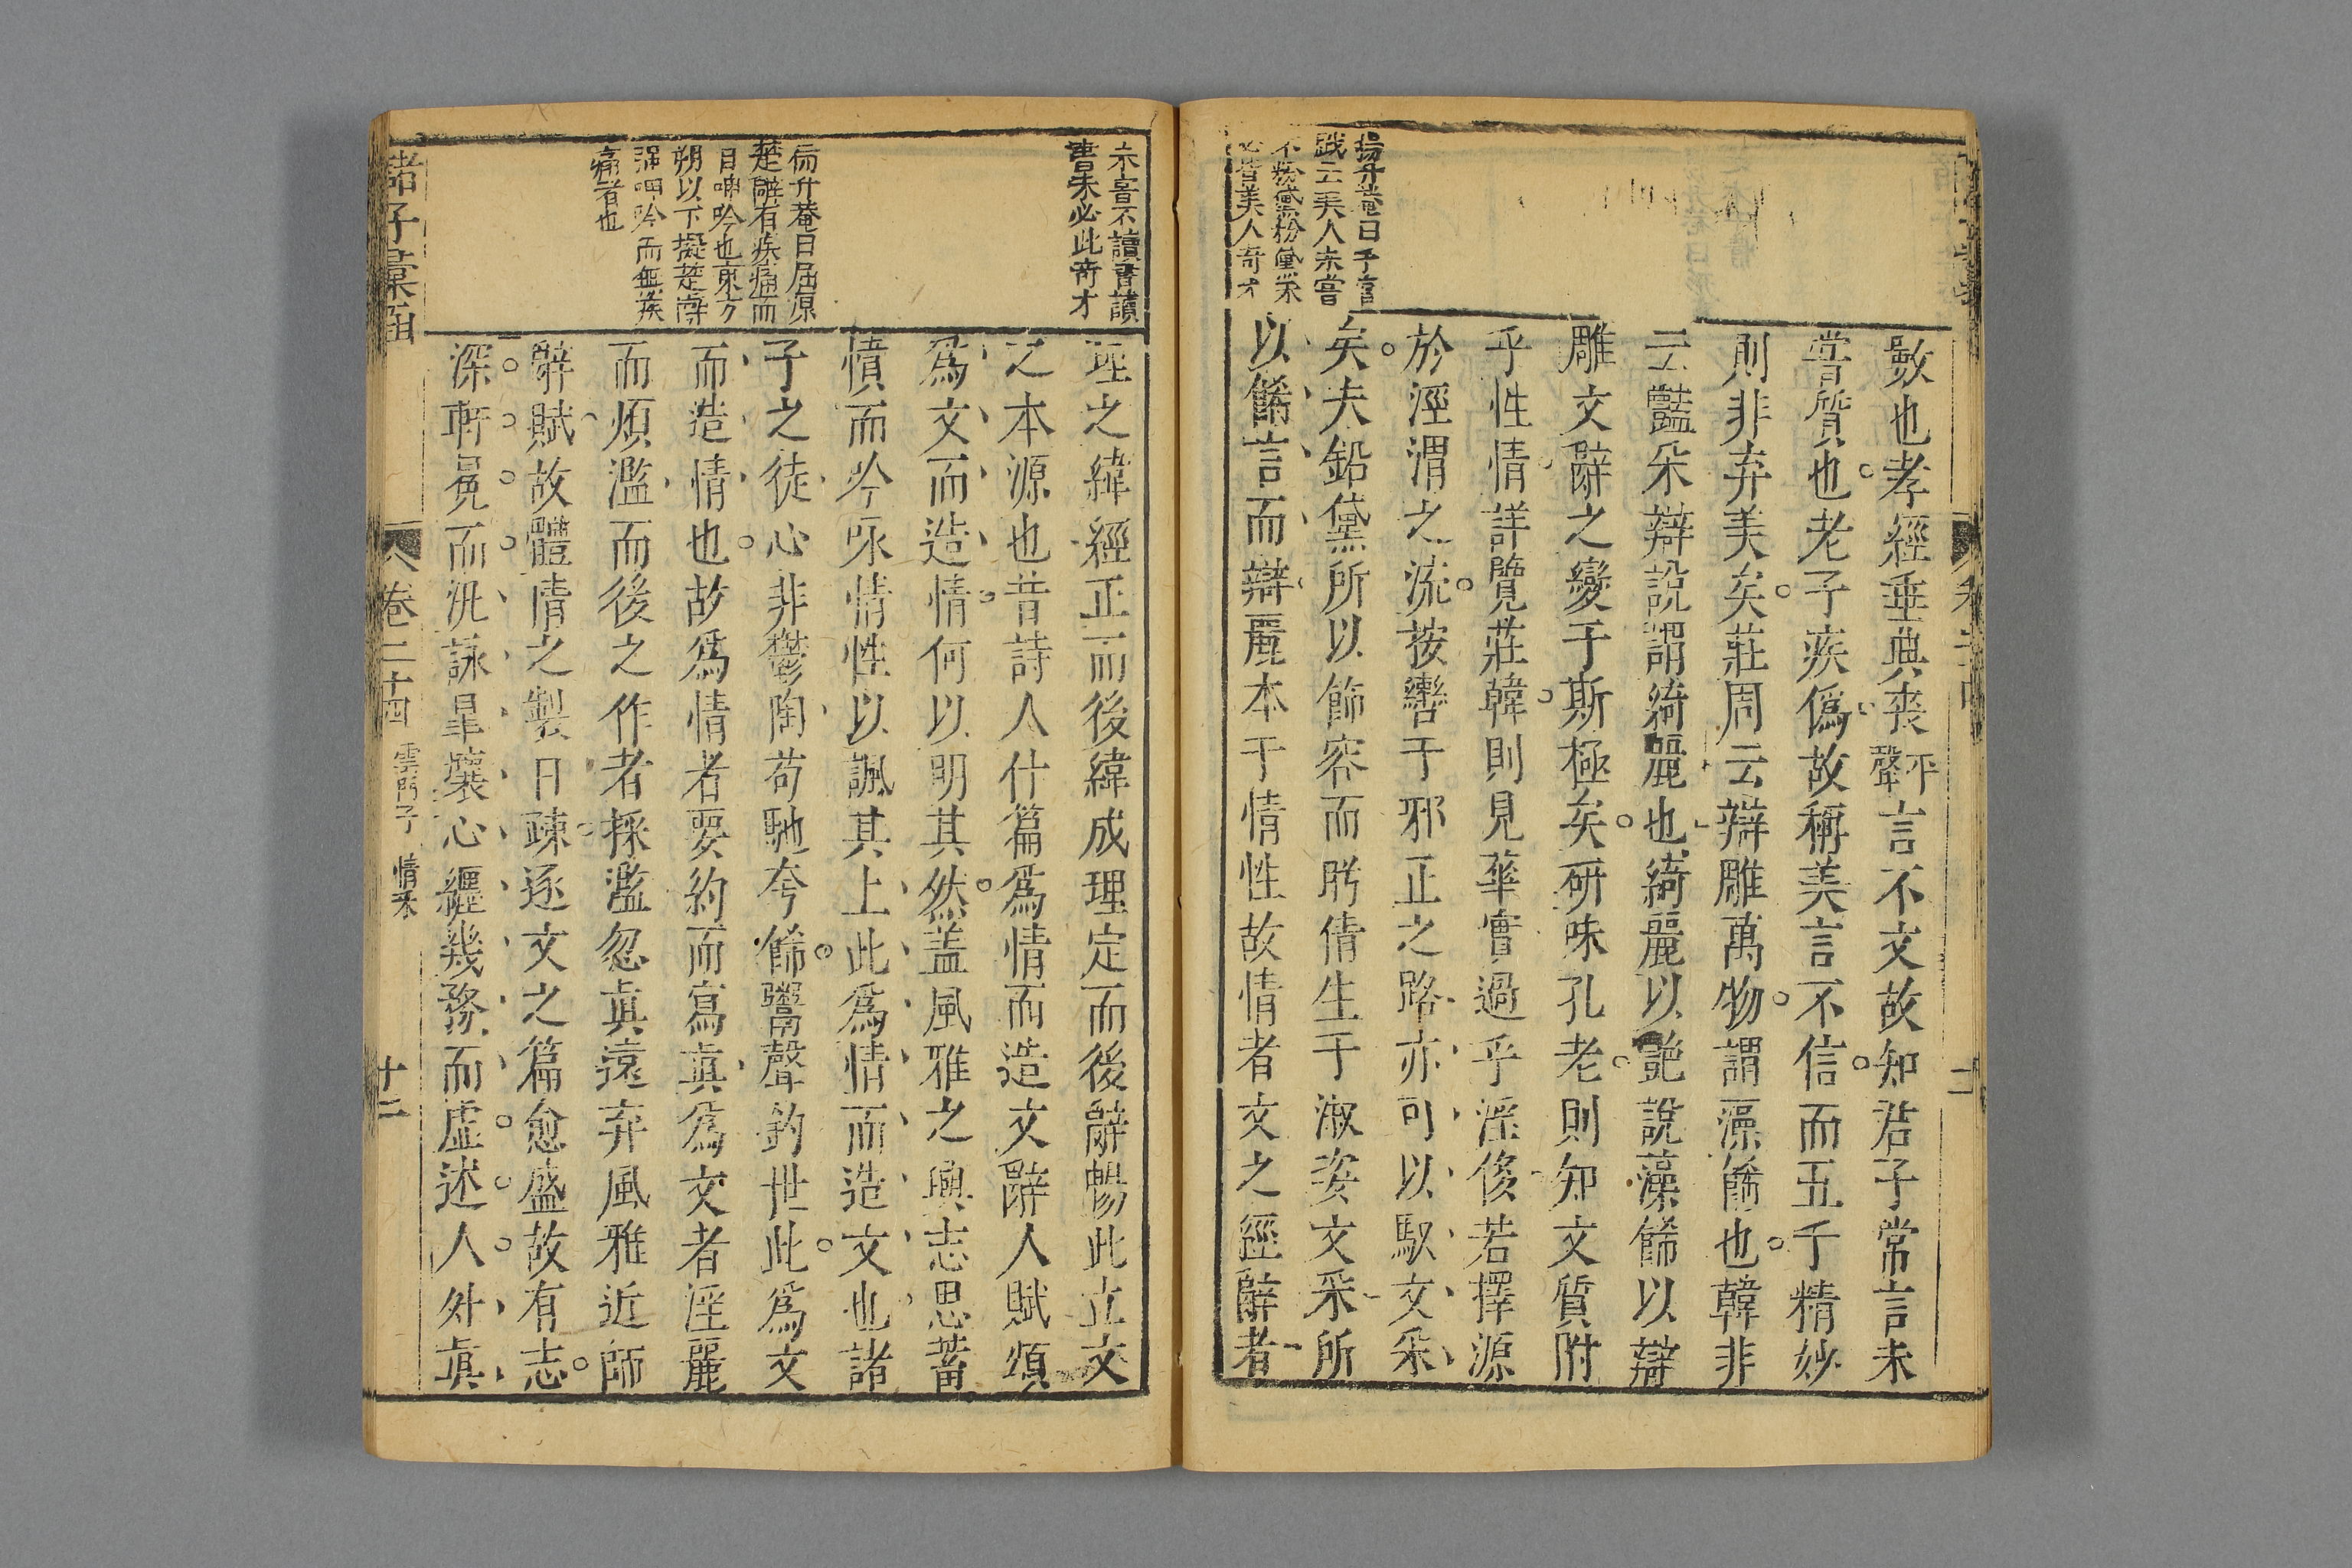 楊升菴曰予嘗
戲云美人未嘗
不粉黛粉黛未
必皆美人奇才
斆也孝經垂典喪平聲言不文故知君子常言未
嘗質也老子疾僞故稱美言不信而五千精妙
則非弃美矣莊周云辯雕萬物謂藻餙也韓非
云豔釆辯說謂綺麗也綺麗以艷說藻餙以辯
雕文辭之變于斯極矣研味孔老則知文質附
乎性情詳覽莊韓則見華實過乎淫侈若擇源
於涇渭之流按轡于邪正之路亦可以馭文釆
矣夫鉛黛所以飾容而盻倩生于淑姿文釆所
以餙言而辯麗本于情性故情者文之經辭者
未嘗不讀書讀
書未必皆奇才
楊升菴曰屈原
楚辭有疾痛而
自呻吟也東方
朔以下擬楚辭
强呻吟而無疾
痛者也
理之緯經正而後緯成理定而後辭暢此立文
之本源也昔詩人什篇爲情而造文辭人賦頌
爲文而造情何以明其然盖風雅之興志思蓄
憤而吟咏情性以諷其上此爲情而造文也諸
子之徒心非鬱陶茍馳夸餙鬻聲釣世此爲文
而造情也故爲情者要約而寫眞爲文者淫麗
而煩濫而後之作者採濫忽眞遠弃風雅近師
辭賦故體情之製日疎逐文之篇愈盛故有志
深軒冕而汎詠皐壤心纒幾務而虛述人外眞
諸子彙函
卷二十四 雲門子 情釆 十二